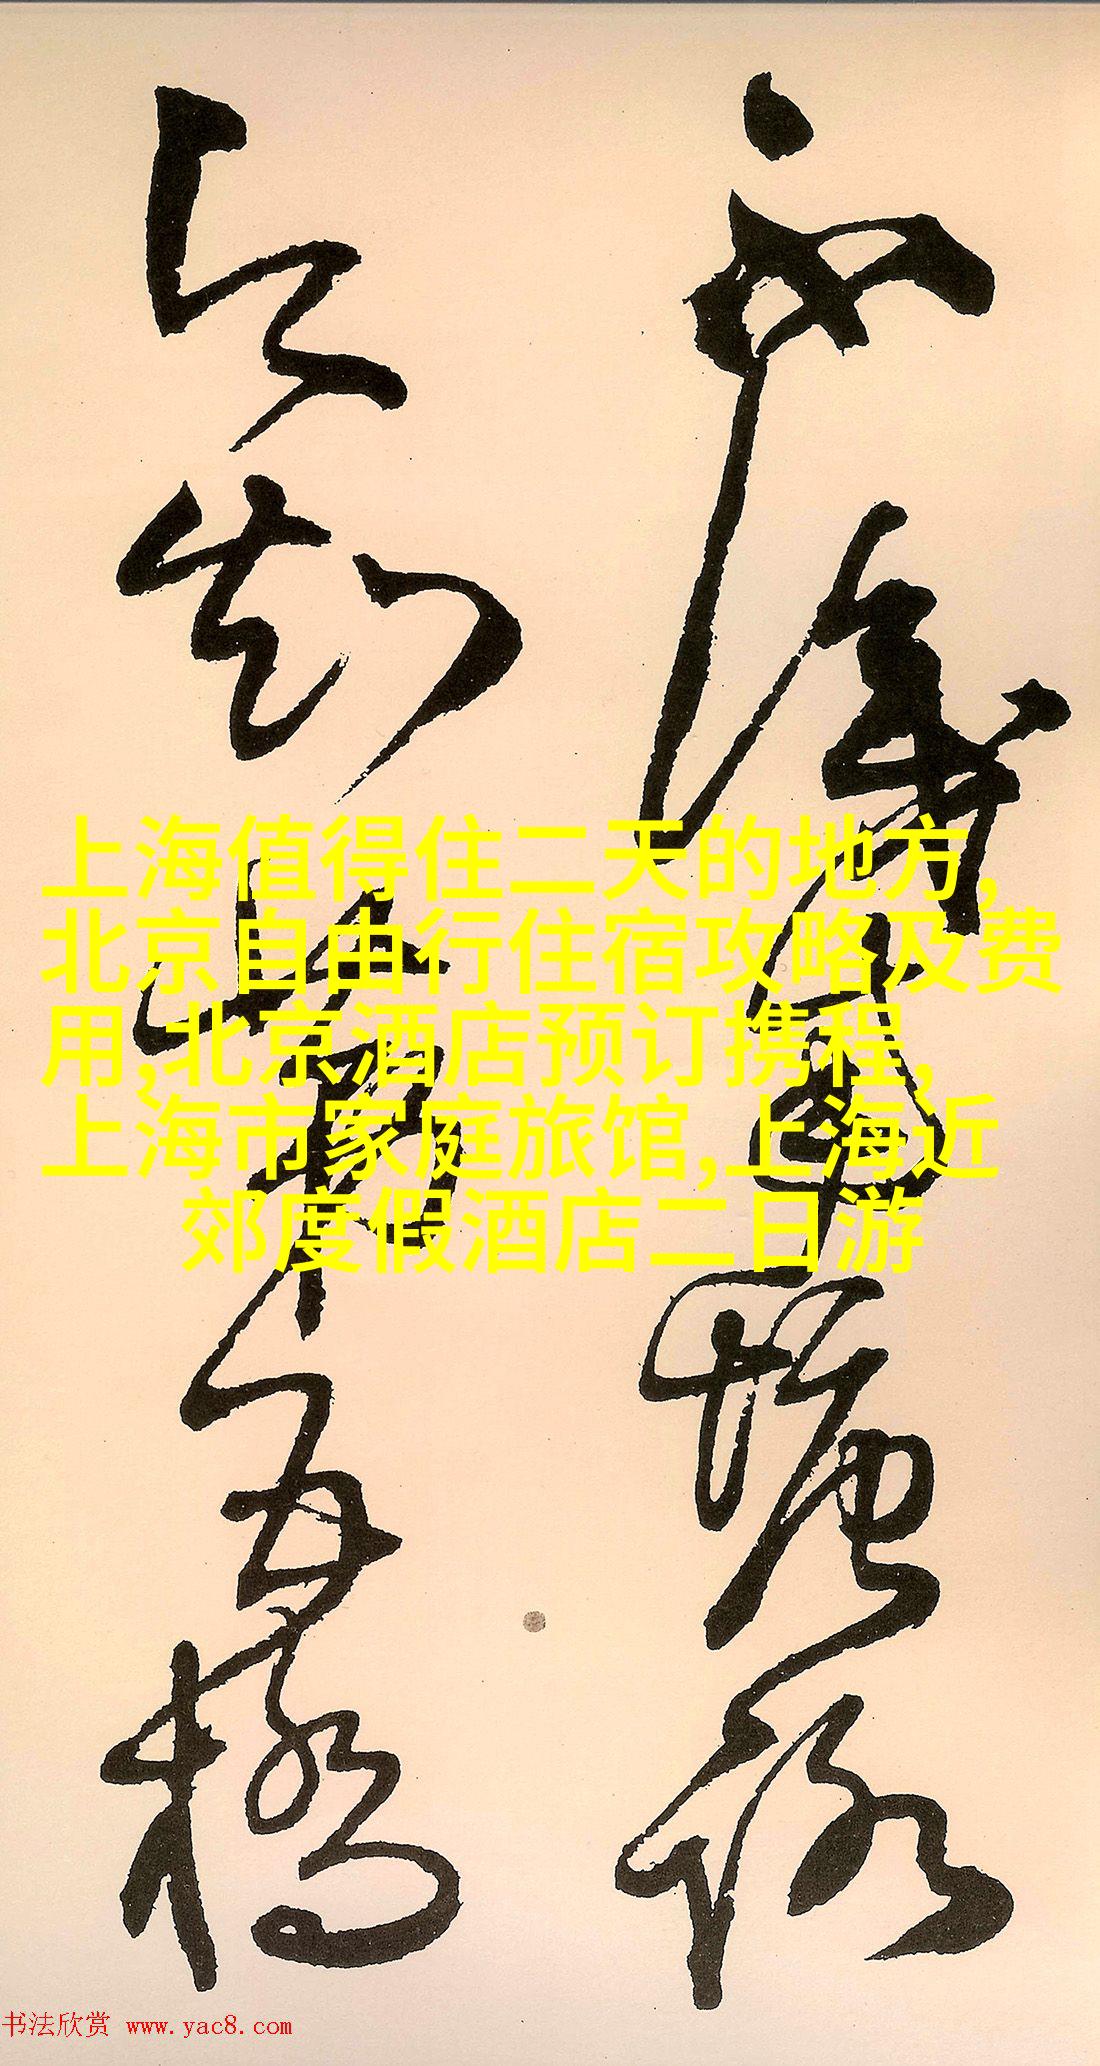 不識南塘路
今知第五橋
上海值得住二天的地方,
北京自由行住宿攻略及费
用,北京酒店预订携程,
上海市家庭旅馆,上海近
郊度假酒店二日游
书法欣赏 www.yac8.com